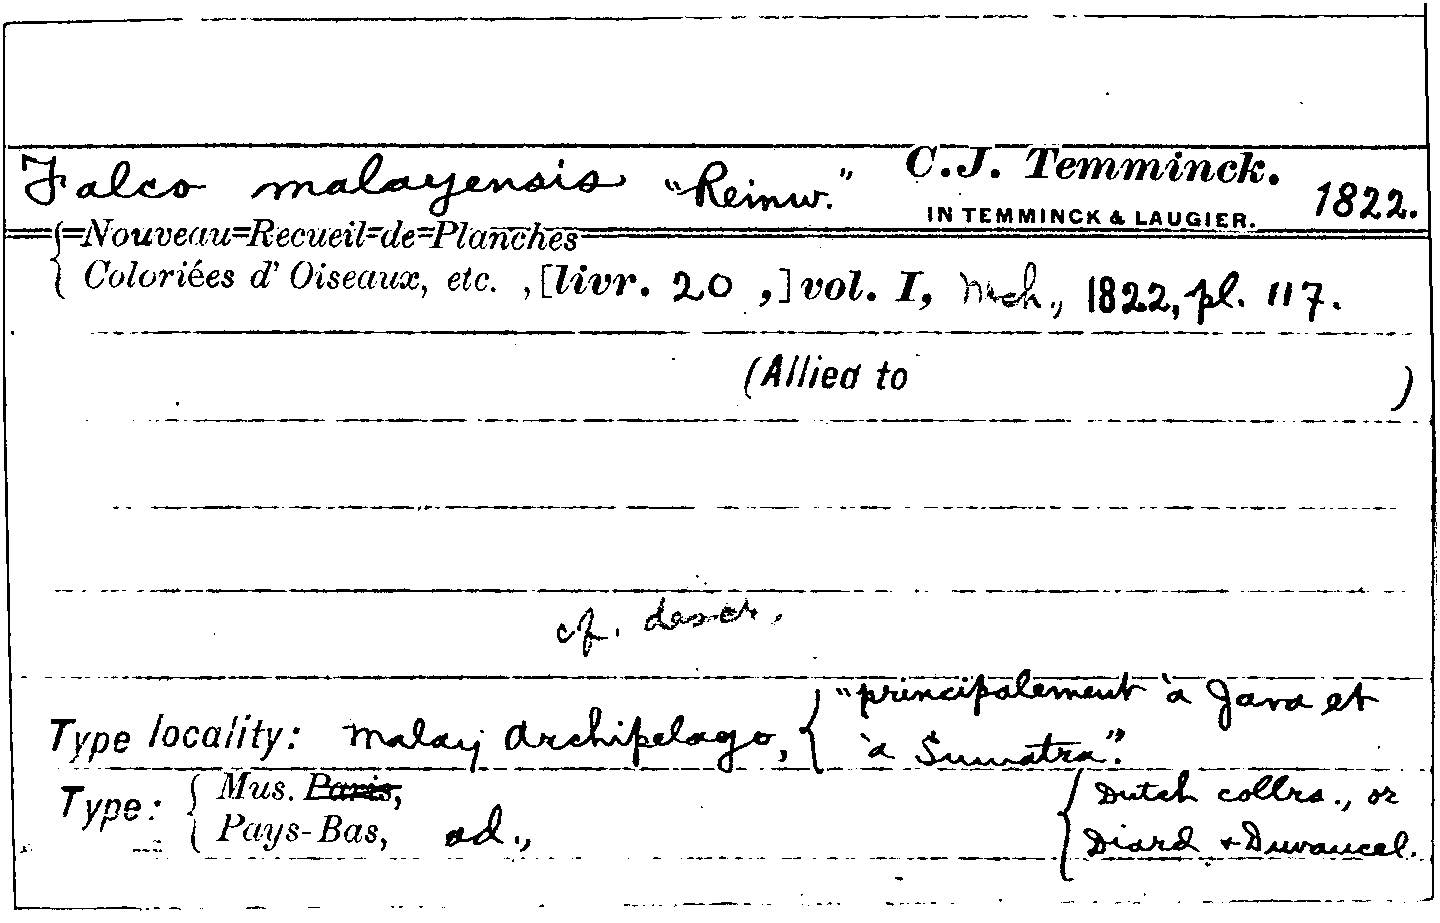 Falco malayensis "Reinw." C.J. Temminck. 1822.
IN TEMMINCK & LAUGIER.
Nouveau Recueil de Planches
Coloriées d' Oiseaux, etc. , [livr. 20 ,] vol. I, Mch., 1822, pl. 117.
(Allied to )
cf. descr.
Type locality: Malay Archipelago, { "principalement à Java et
à Sumatra".
Type: { Mus. Paris, { Dutch collrs., or
Pays-Bas, ad., Diard & Duvaucel.